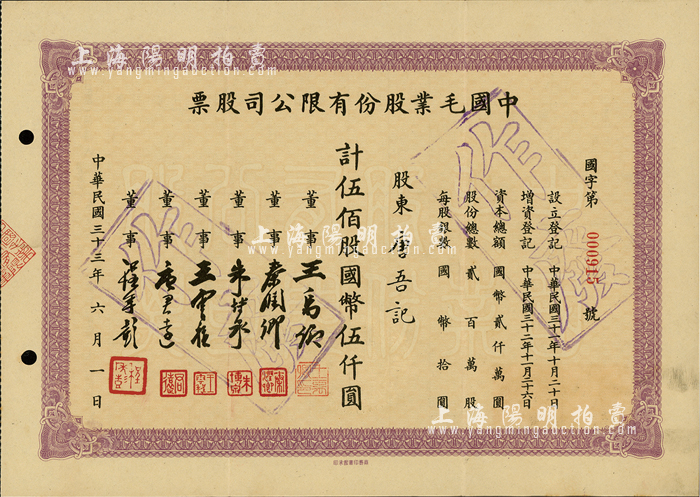 上海陽明拍賣
www.yangmingauction.com
中國毛業股份有限公司股票
國字第 0000915 號
設立登記 中華民國三十一年十月二十日
增資登記 中華民國三十二年十一月二十六日
資本總額 國幣貳仟萬圓
股份總數 貳百萬股
每股銀數 國幣拾圓
股東 唐吾記
計伍佰股國幣伍仟圓
董事 王禹卿
董事
董事
董事 王雲程
董事 唐君遠
董事
中華民國三十三年六月一日
作廢
作廢
上海陽明拍賣
www.yangmingauction.com
上海陽明拍賣
www.yangmingauction.com